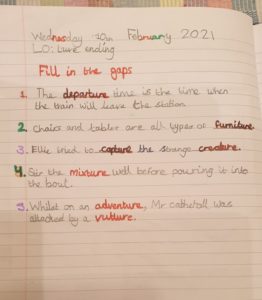 Wednesday 10th February 2021
LO: ture ending
Fill in the gaps
1. The departure time is the time when
the train will leave the station
2. Chairs and tables are all types of furniture.
3. Ellie tried to capture the strange creature.
4. Stir the mixture well before pouring it into
the bowl.
5. Whilst on an adventure, Mr was
attacked by a vulture.